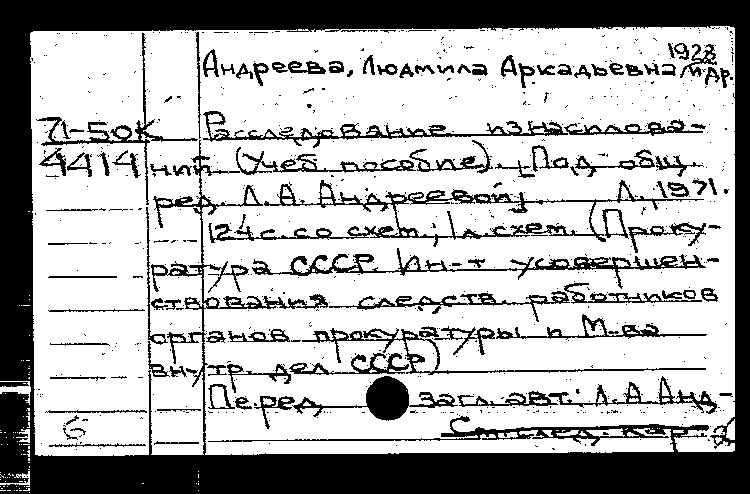 1928
Андреева, Людмила Аркадьевна и др.
71-50К Расследование изнасилова-
4414 ний. (Учеб. пособие). [Под общ.
ред. Л. А. Андреевой]. Л., 1971.
124 с. со схем.; 1 л. схем. (Проку-
ратура СССР. Ин-т усовершен-
ствования следств. работников
органов прокуратуры и М-ва
внутр. дел СССР)
Перед загл. авт.: Л. А. Анд-
6 См. след. кар. 2